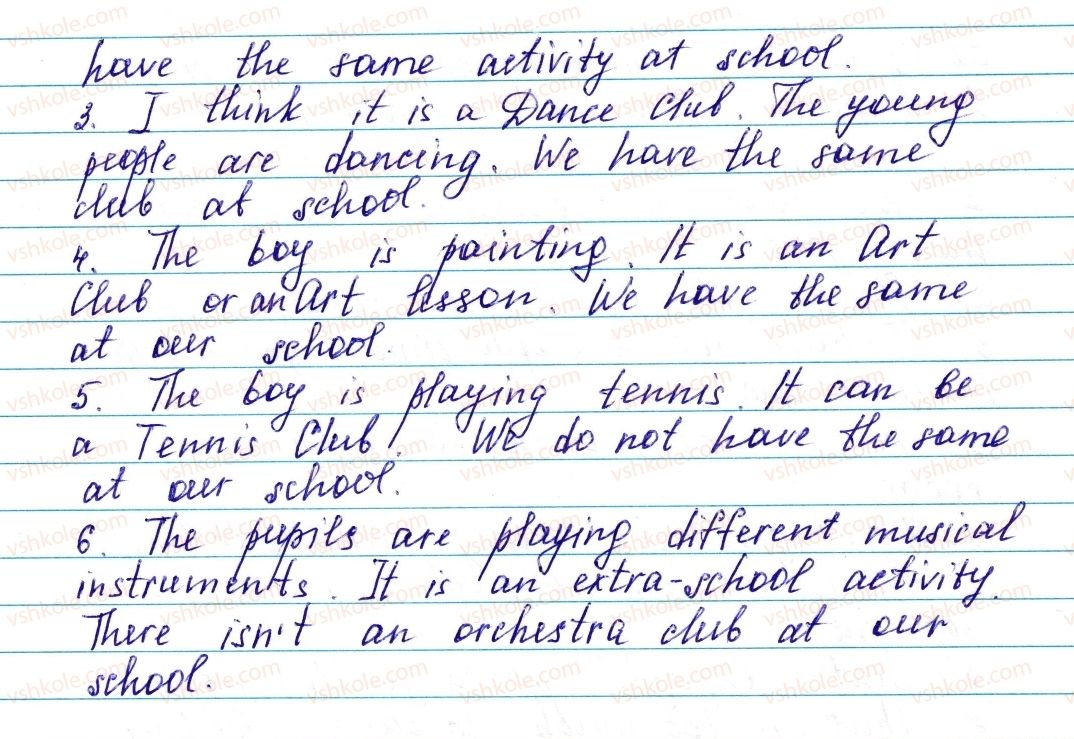 have the same activity at school.
3. I think it is a Dance Club. The young
people are dancing. We have the same
club at school.
4. The boy is painting. It is an Art
Club or an Art lesson. We have the same
at our school.
5. The boy is playing tennis. It can be
a Tennis Club. We do not have the same
at our school.
6. The pupils are playing different musical
instruments. It is an extra-school activity.
There isn't an orchestra club at our
school.